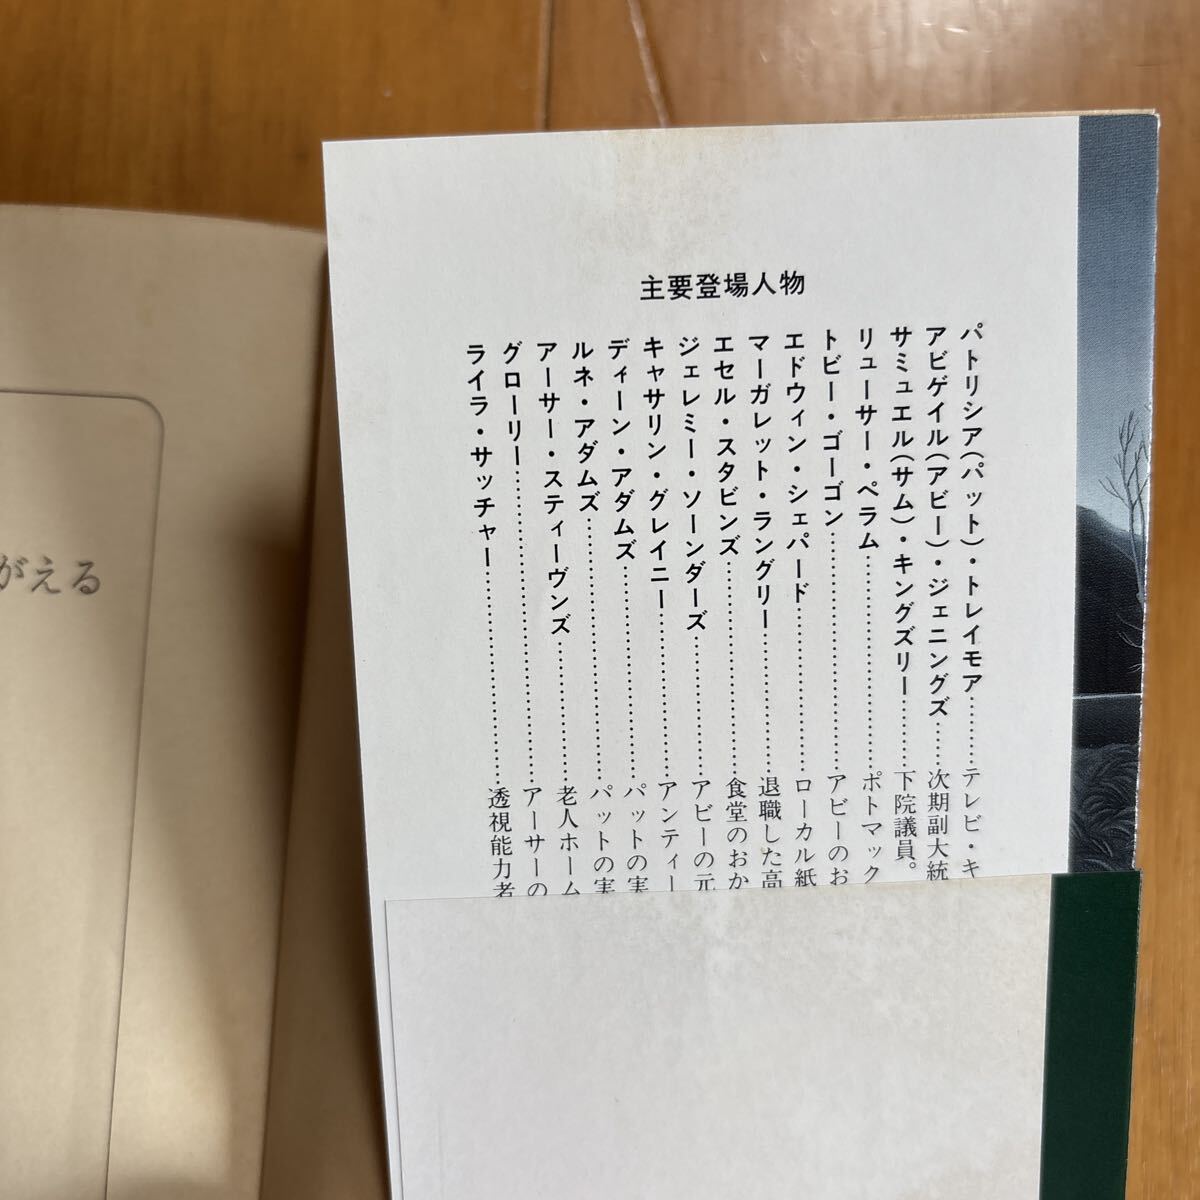 主要登場人物
パトリシア(パット)・トレイモア………テレビ・キ
アビゲイル(アビー)・ジェニングズ……次期副大統
サミュエル(サム)・キングズリー………下院議員。
リューサー・ペラム………………………ポトマック
トビー・ゴーゴン…………………………アビーのお
エドウィン・シェパード…………………ローカル紙
マーガレット・ラングリー………………退職した高
エセル・スタビンズ………………………食堂のおか
ジェレミー・ソーンダーズ………………アビーの元
キャサリン・グレイニー…………………アンティー
ディーン・アダムズ………………………パットの実
ルネ・アダムズ……………………………パットの実
アーサー・スティーヴンズ………………老人ホーム
グローリー…………………………………アーサーの
ライラ・サッチャー………………………透視能力者
がえる